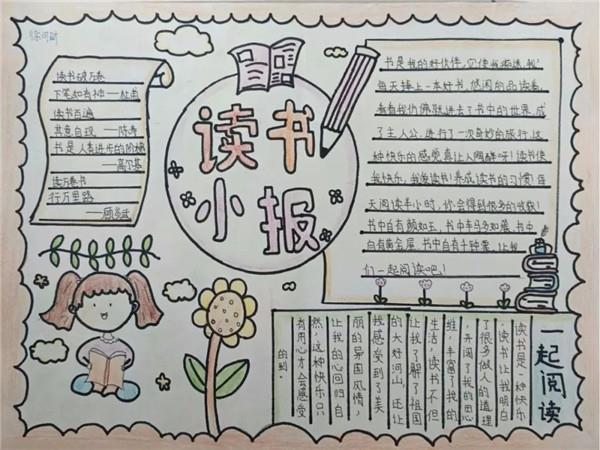 读书
小报
读书破万卷
下笔如有神——杜甫
读书百遍
其意自现——陈寿
书是人类进步的阶梯
——高尔基
读万卷书
行万里路
——顾炎武
书是我的好伙伴,它使我痴迷,我!
每天捧上一本好书,悠闲的品读着,
看着我仿佛跃进去了书中的世界,成
了主人公,进行了一次奇妙的旅行,这
种快乐的感觉真让人陶醉呀!读书使
我快乐,我爱读书!养成读书的习惯!每
天阅读半小时,你会得到很多的收获!
书中自有颜如玉,书中车马多如簇,书中
自有黄金屋,书中自有千钟粟,让我
们一起阅读吧!
一起阅读
读书是一种快乐
,读书让我明白
了很多做人的道理
,开阔了我的思
维,丰富了我的
生活,读书不但
让我了解了祖国
的大好河山,还让
我感受到了美
丽的异国风情,
让我的心回归自
然,这种快乐只
有用心才会感受
的到。